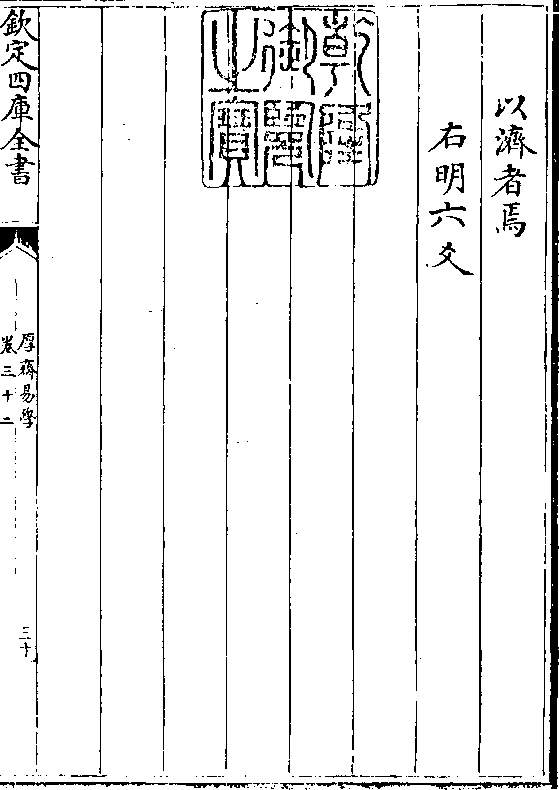 以濟者焉
右明六爻
乾隆御覽之寶
欽定四庫全書
厚齋易學
卷三十二
三十